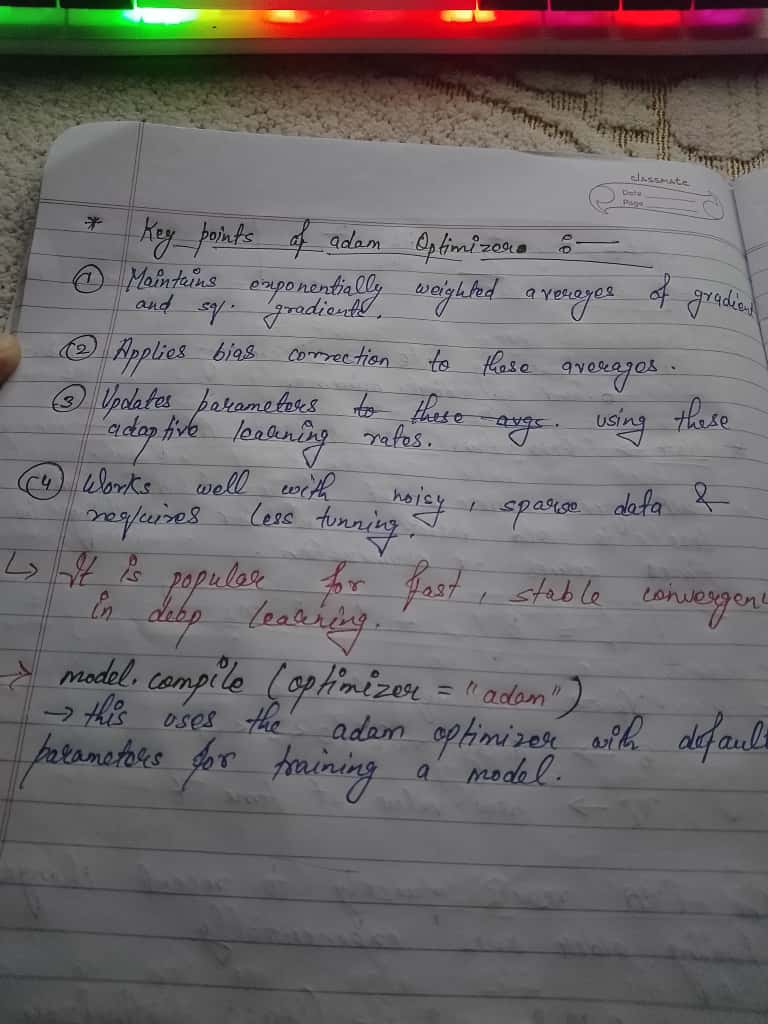 classmate
Date
Page
* Key points of adam Optimizer :-
① Maintains exponentially weighted averages of gradient
and sq. gradients.
② Applies bias correction to these averages.
③ Updates parameters to these avgs. using these
adaptive learning rates.
④ Works well with noisy, sparse data &
requires less tunning.
↳ It is popular for fast, stable convergen
in deep learning.
→ model.compile (optimizer = "adam")
→ this uses the adam optimizer with default
parameters for training a model.